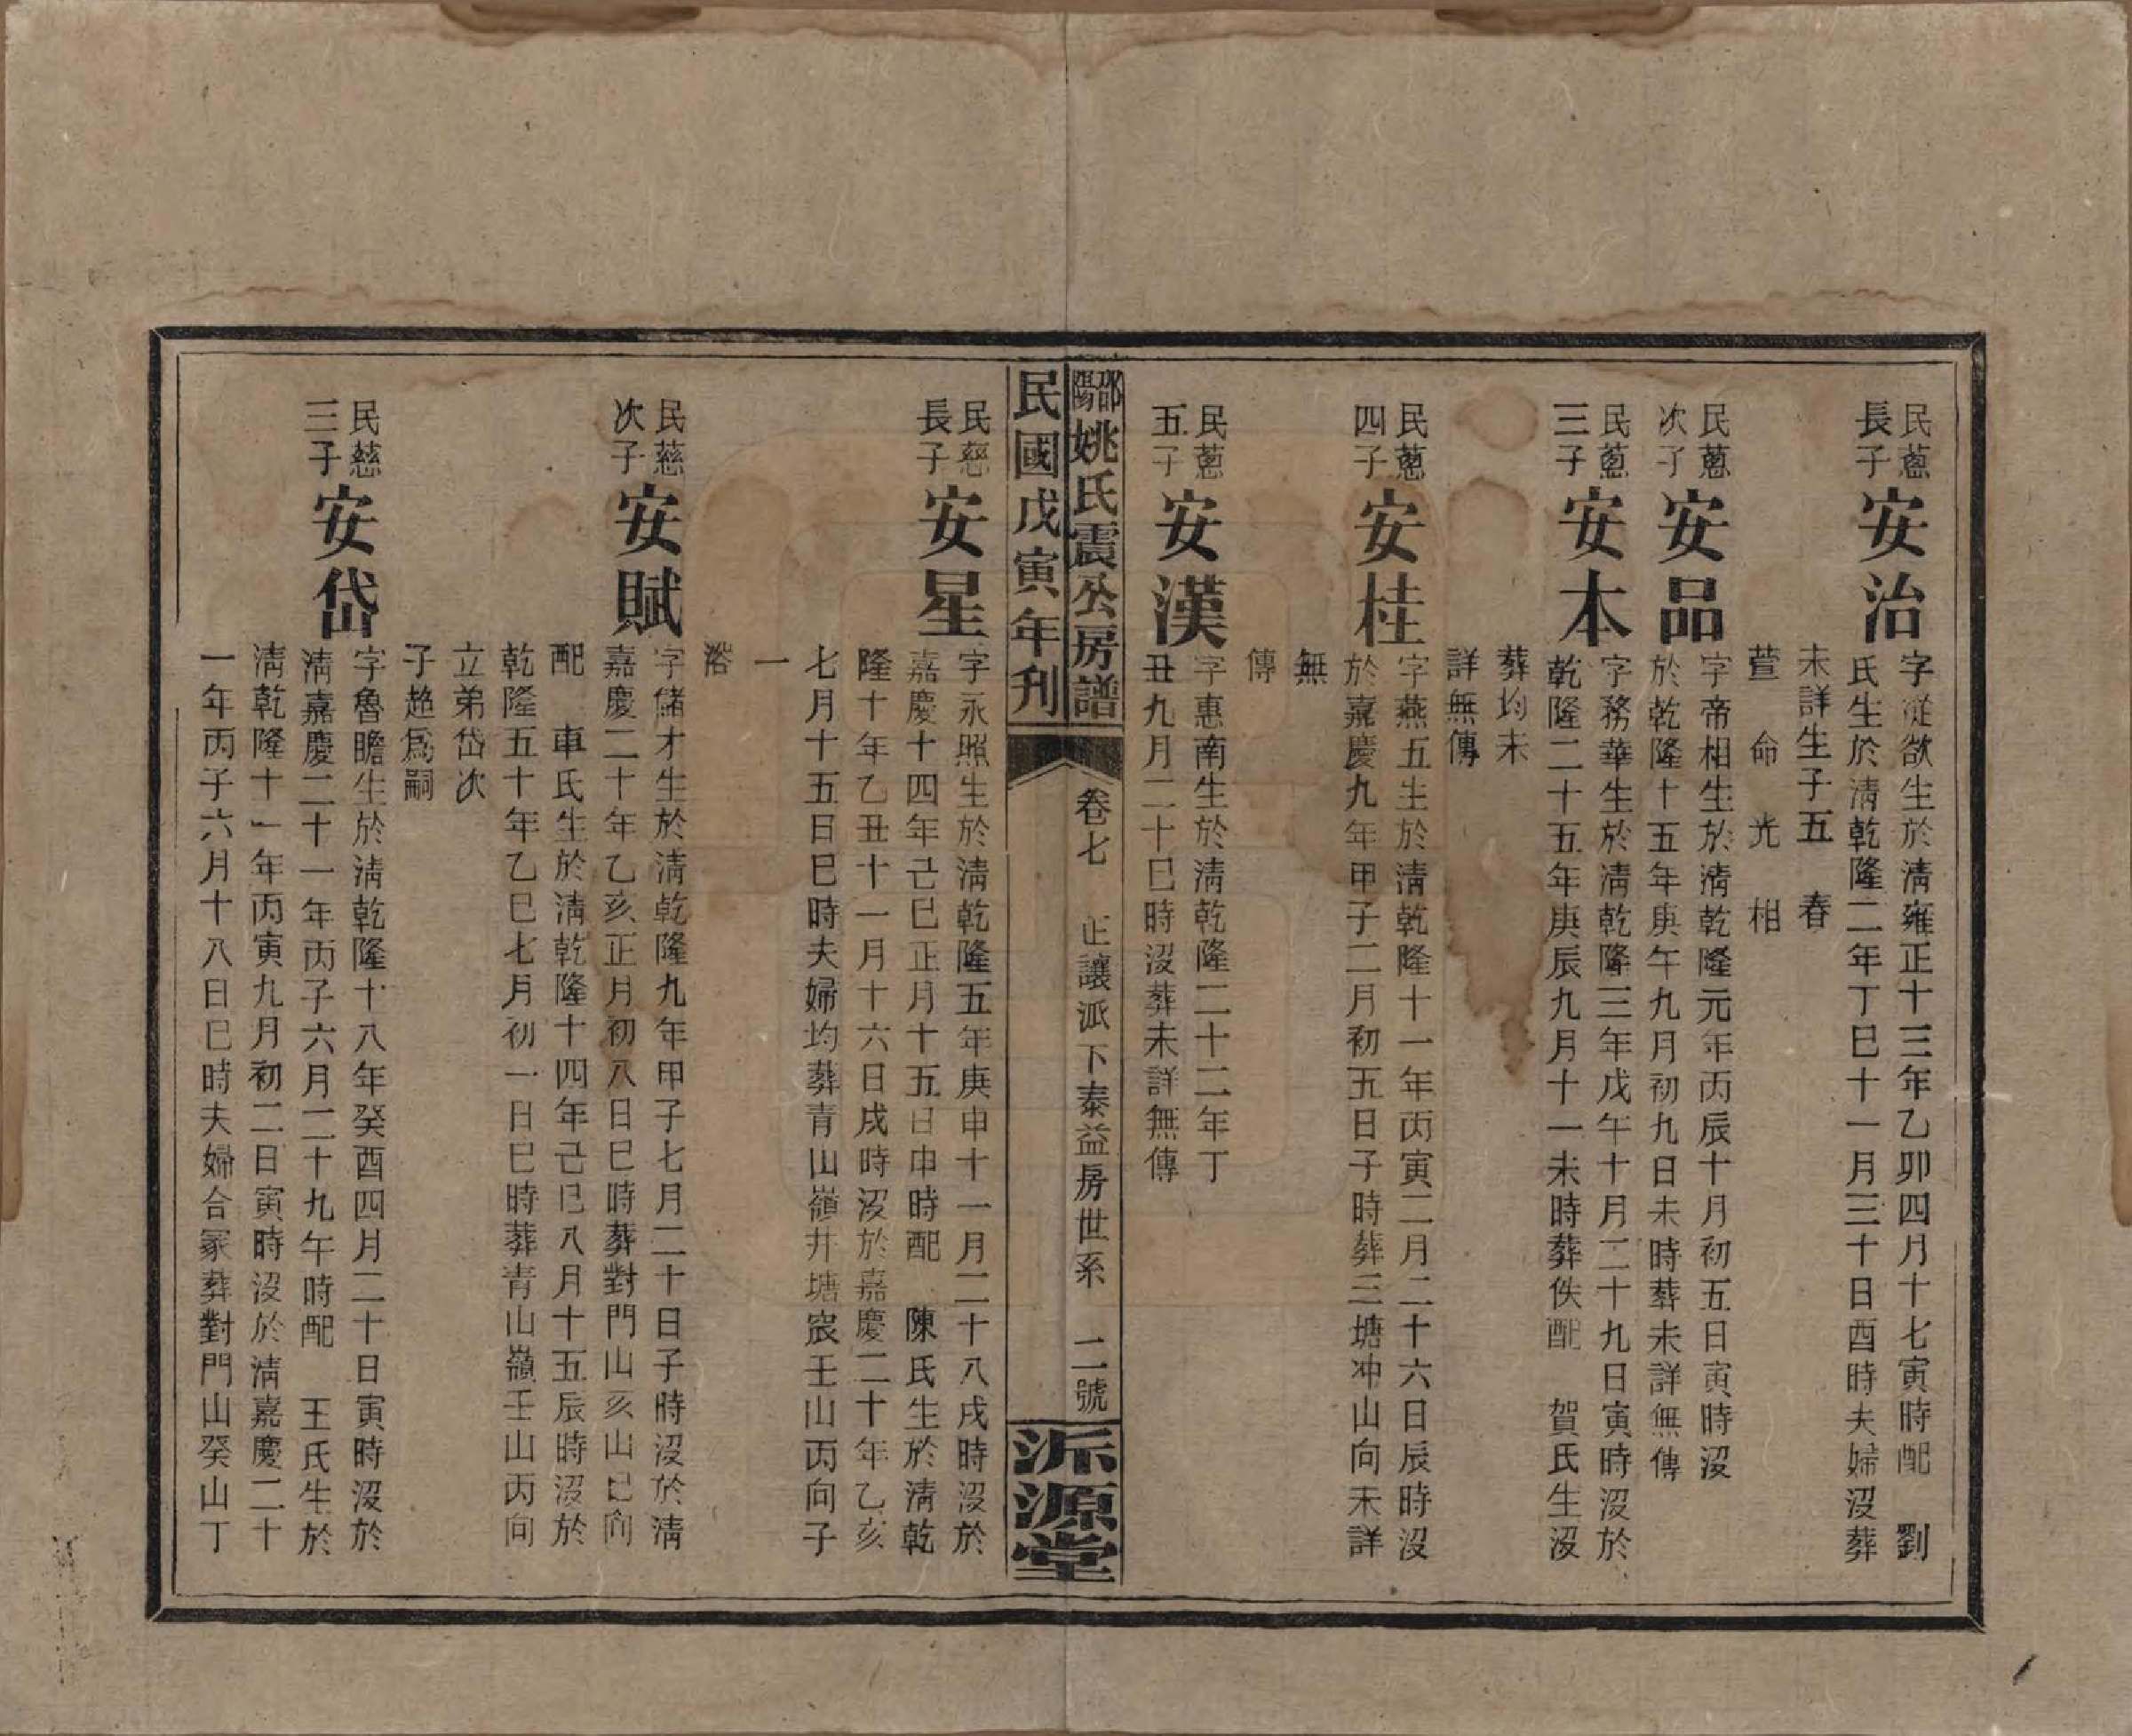 民蔥長子
安治
字從欲生於清雍正十三年乙卯四月十七寅時配　劉
氏生於清乾隆二年丁巳十一月三十日酉時夫婦沒葬
未詳生子五　春
萱　命　光　相
民蔥次子
安品
字帝相生於清乾隆元年丙辰十月初五日寅時沒
於乾隆十五年庚午九月初九日未時葬未詳無傳
民蔥三子
安本
字務華生於清乾隆三年戊午十月二十九日寅時沒於
乾隆二十五年庚辰九月十一未時葬佚配　賀氏生沒
葬均未
詳無傳
民蔥四子
安桂
字燕五生於清乾隆十一年丙寅二月二十六日辰時沒
於嘉慶九年甲子二月初五日子時葬三塘冲山向未詳
無
傳
民蔥五子
安漢
字惠南生於清乾隆二十二年丁
丑九月二十巳時沒葬未詳無傳
邵陽姚氏震公房譜
民國戊寅年刋
卷七　正讓派下泰益房世系　二號
派源堂
民慈長子
安星
字永照生於清乾隆五年庚申十一月二十八戌時沒於
嘉慶十四年己巳正月十五日申時配　陳氏生於清乾
隆十年乙丑十一月十六日戌時沒於嘉慶二十年乙亥
七月十五日巳時夫婦均葬青山嶺井塘宸壬山丙向子
一
澯
民慈次子
安賦
字儲才生於清乾隆九年甲子七月二十日子時沒於清
嘉慶二十年乙亥正月初八日巳時葬對門山亥山巳向
配　車氏生於清乾隆十四年己巳八月十五辰時沒於
乾隆五十年乙巳七月初一日巳時葬青山嶺壬山丙向
立弟岱次
子趙爲嗣
民慈三子
安岱
字魯瞻生於清乾隆十八年癸酉四月二十日寅時沒於
清嘉慶二十一年丙子六月二十九午時配　王氏生於
清乾隆十一年丙寅九月初二日寅時沒於清嘉慶二十
一年丙子六月十八日巳時夫婦合冢葬對門山癸山丁